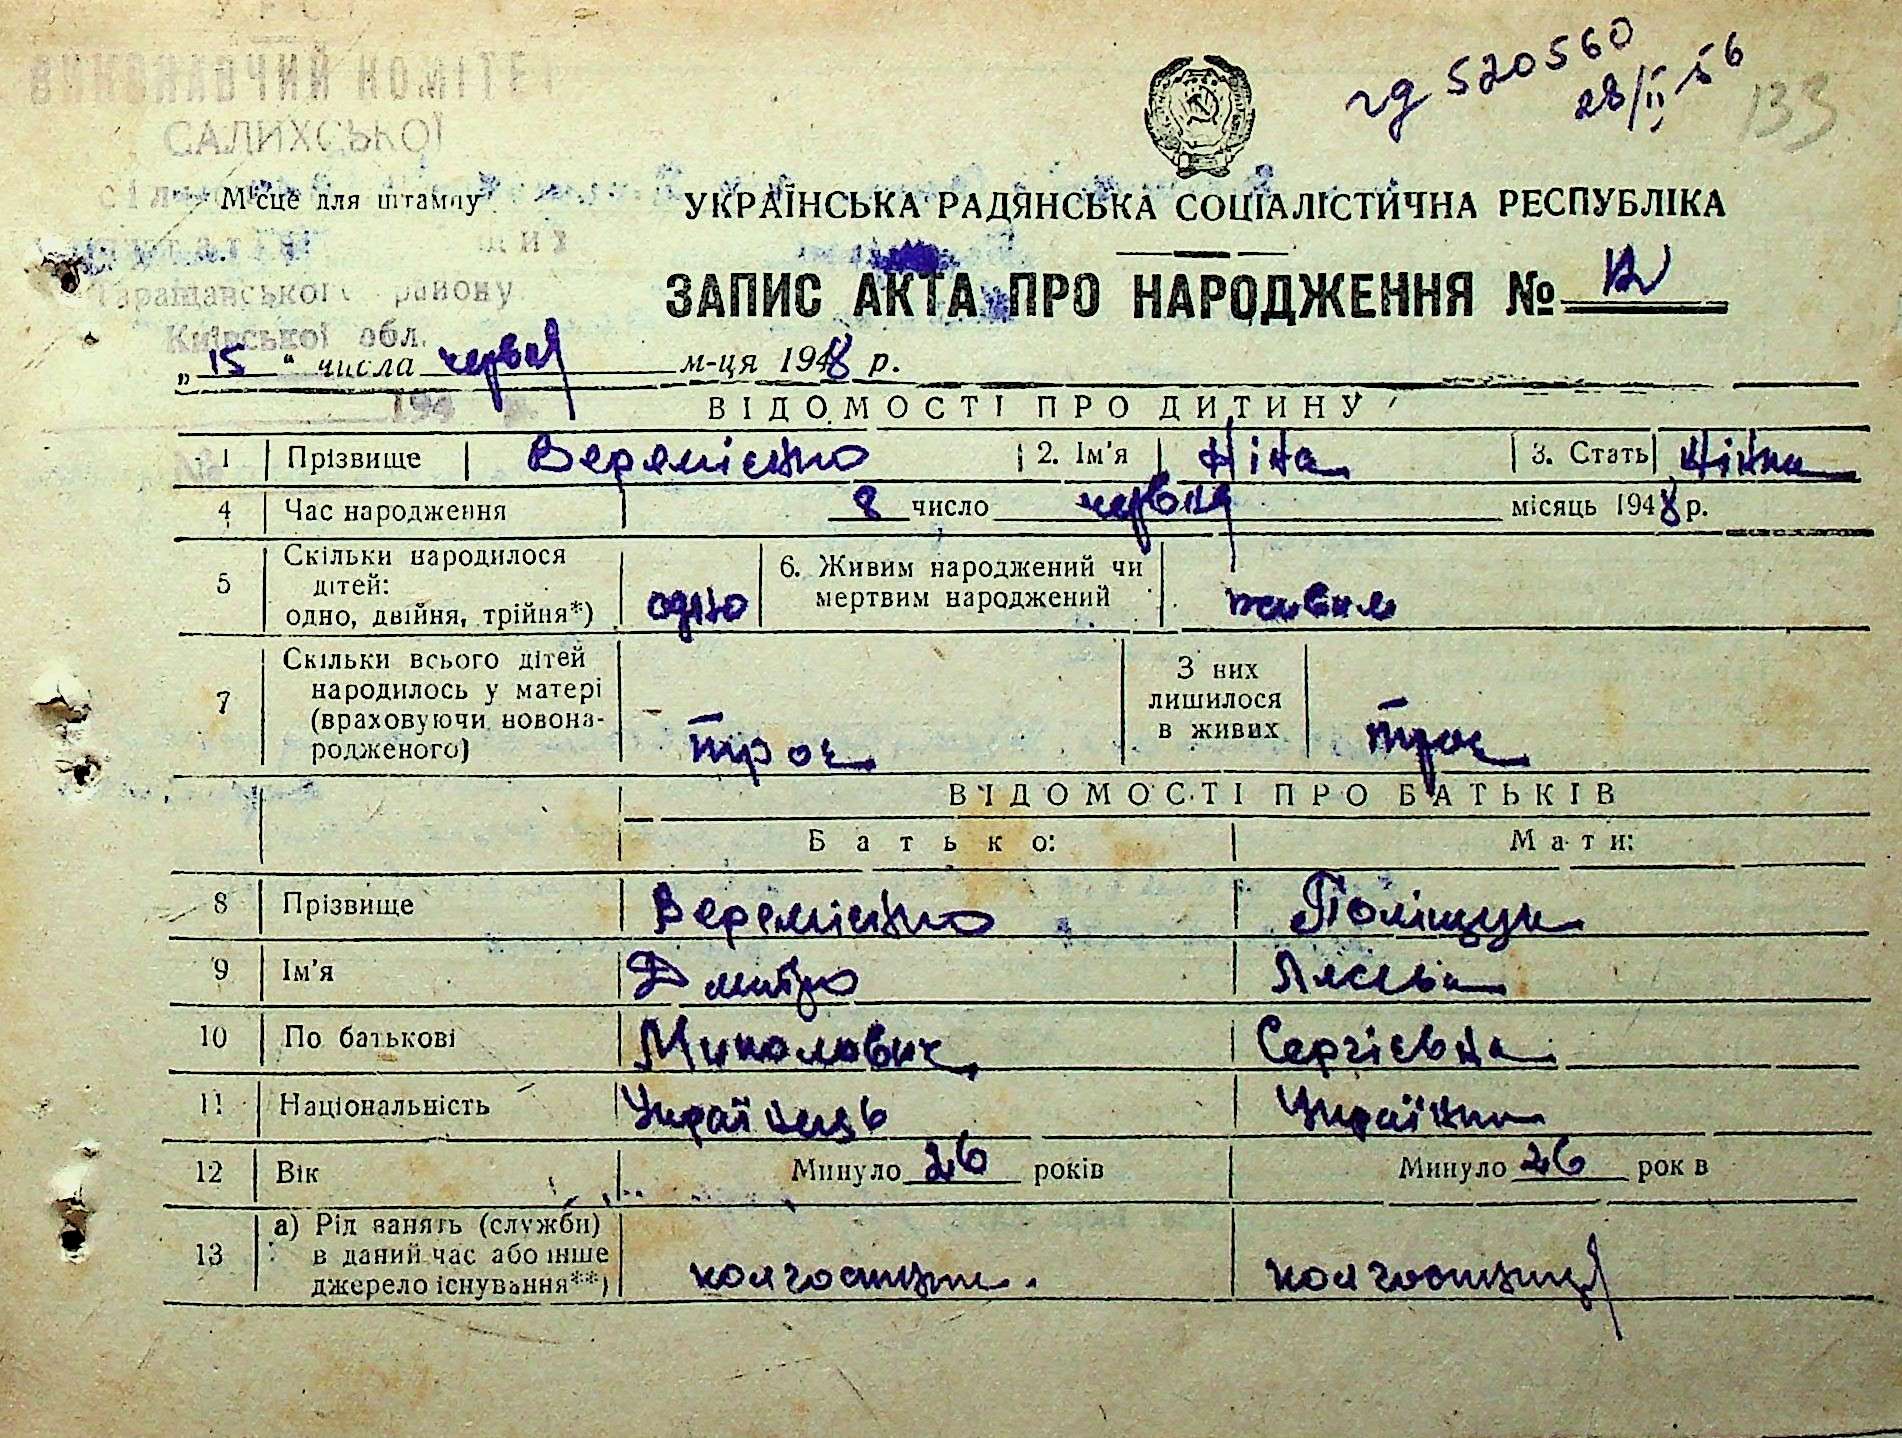 УРСР
ВИКОНАВЧИЙ КОМІТЕТ
САЛИХСЬКОЇ
Місце для штампу
Таращанського району
Київської обл.
194 р.
№
гд 520560
28/II 56
133
УКРАЇНСЬКА РАДЯНСЬКА СОЦІАЛІСТИЧНА РЕСПУБЛІКА
ЗАПИС АКТА ПРО НАРОДЖЕННЯ № 12
„ 15 “ числа червня м-ця 1948 р.
ВІДОМОСТІ ПРО ДИТИНУ
1 Прізвище Веремієнко 2. Ім'я Ніна 3. Стать жінка
4 Час народження 8 число червня місяць 1948 р.
5 Скільки народилося дітей: одно, двійня, трійня*) одно 6. Живим народжений чи мертвим народжений живим
7 Скільки всього дітей народилось у матері (враховуючи новонародженого) троє З них лишилося в живих троє
ВІДОМОСТІ ПРО БАТЬКІВ
Батько: Мати:
8 Прізвище Веремієнко Поліщук
9 Ім'я Дмитро
10 По батькові Миколович Сергієвна
11 Національність Українець Українка
12 Вік Минуло 26 років Минуло 26 рок в
13 а) Рід занять (служби) в даний час або інше джерело існування**) колгоспник колгоспниця